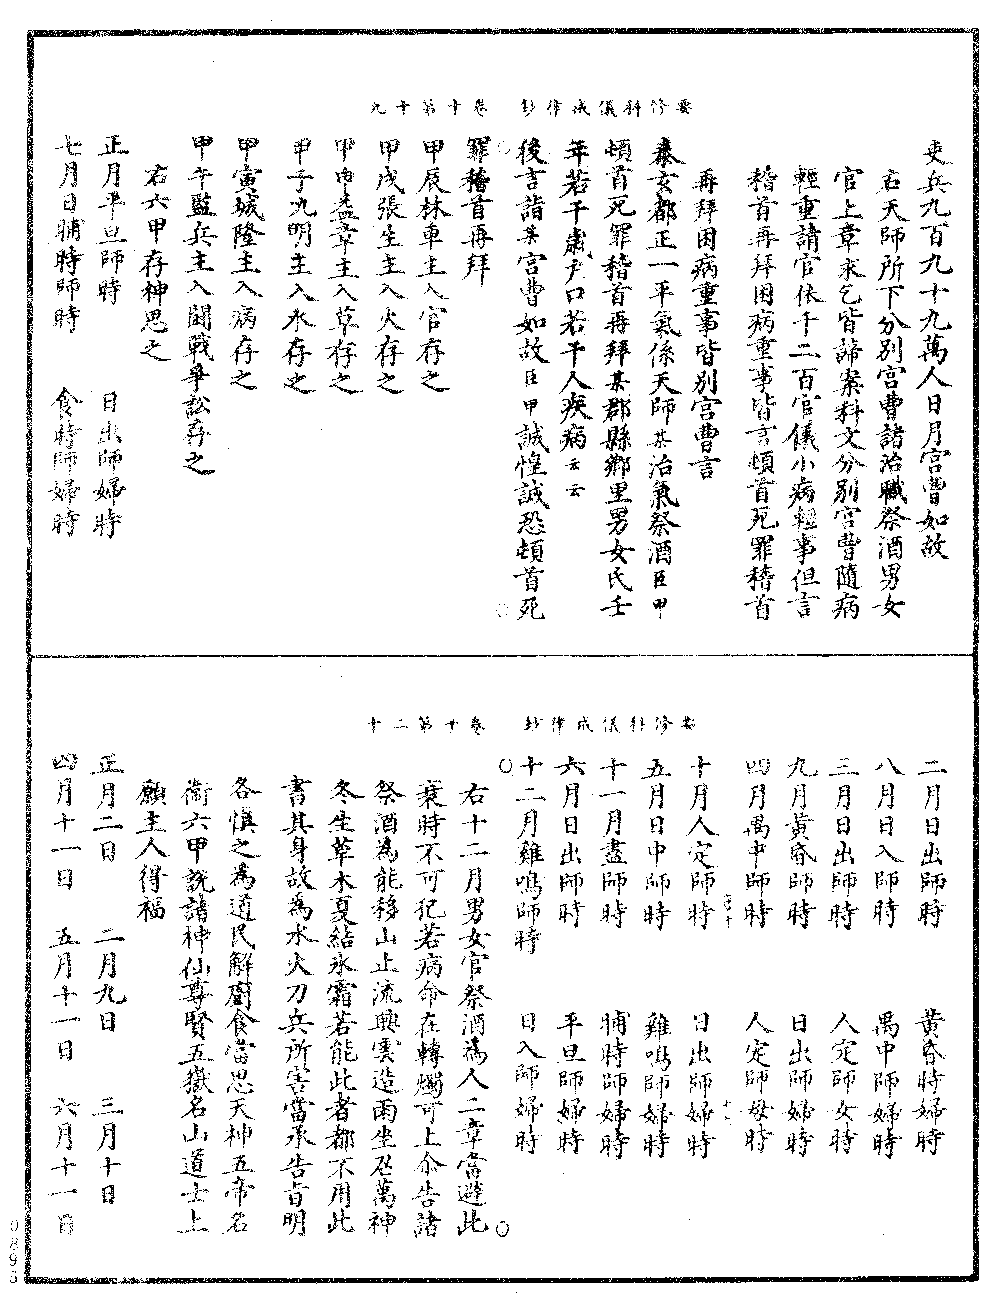 要修科儀戒律鈔　卷十第十九
吏兵九百九十九萬人日月宮曹如故
右天師所下分別宮曹諸治職祭酒男女
官上章求乞皆諦案科文分別宮曹隨病
輕重請官依千二百官儀小病輕事但言
稽首再拜困病重事皆言頓首死罪稽首
再拜困病重事皆別宮曹言
泰玄都正一平氣係天師某治氣祭酒臣甲
頓首死罪稽首再拜某郡縣鄉里男女氏壬
年若干歲戶口若干人疾病云云
後言詣某宮曹如故臣甲誠惶誠恐頓首死
罪稽首再拜
甲辰林車主入官存之
甲戌張生主入火存之
甲申盖章主入草存之
甲子九明主入水存之
甲寅城隆主入病存之
甲午監兵主入鬪戰爭訟存之
右六甲存神思之
正月平旦師時　日出師婦時
七月日晡時師時　食時師婦時
要修科儀戒律鈔　卷十第二十
二月日出師時　黃昏時婦時
八月日入師時　禺中師婦時
三月日出師時　人定師女時
九月黃昏師時　日出師婦時
四月禺中師時　人定師母時
十月人定師時　日出師婦時
五月日中師時　雞鳴師婦時
十一月晝師時　晡時師婦時
六月日出師時　平旦師婦時
十二月雞鳴師時　日入師婦時
右十二月男女官祭酒為人上章當避此
衰時不可犯若病命在轉燭可上余告諸
祭酒為能移山止流興雲造雨坐召萬神
冬生草木夏結氷霜若能此者都不用此
書其身故為水火刀兵所害當承告旨明
各慎之為道民解廚食當思天神五帝名
銜六甲說諸神仙尊賢五嶽名山道士上
願主人得福
正月二日　二月九日　三月十日
四月十一日　五月十一日　六月十一日
0895